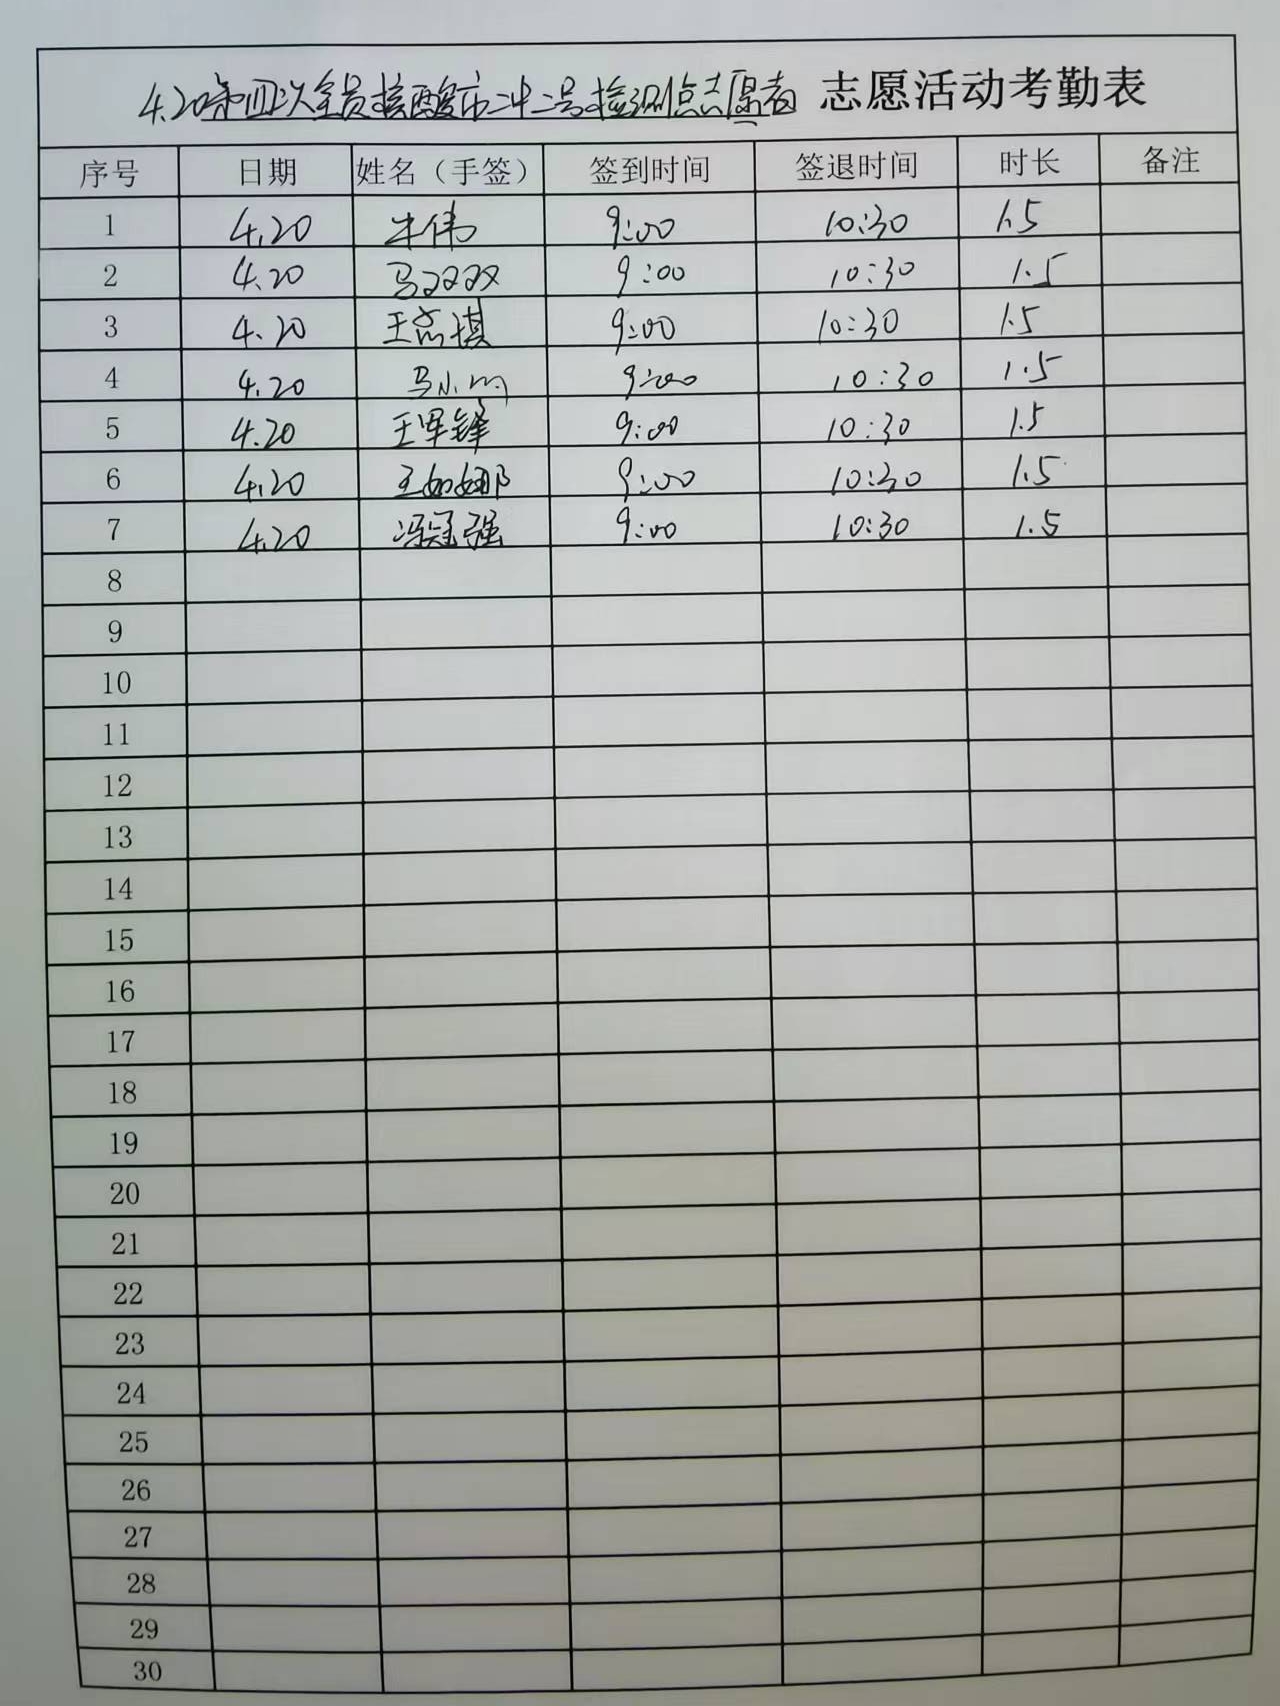 4.20第四次全员核酸市二十二号检测点志愿者 志愿活动考勤表
序号 日期 姓名（手签） 签到时间 签退时间 时长 备注
1 4.20 牛伟 9:00 10:30 1.5
2 4.20 马双双 9:00 10:30 1.5
3 4.20 王高琪 9:00 10:30 1.5
4 4.20 马小 9:00 10:30 1.5
5 4.20 王军锋 9:00 10:30 1.5
6 4.20 王娜 9:00 10:30 1.5
7 4.20 冯冠强 9:00 10:30 1.5
8
9
10
11
12
13
14
15
16
17
18
19
20
21
22
23
24
25
26
27
28
29
30